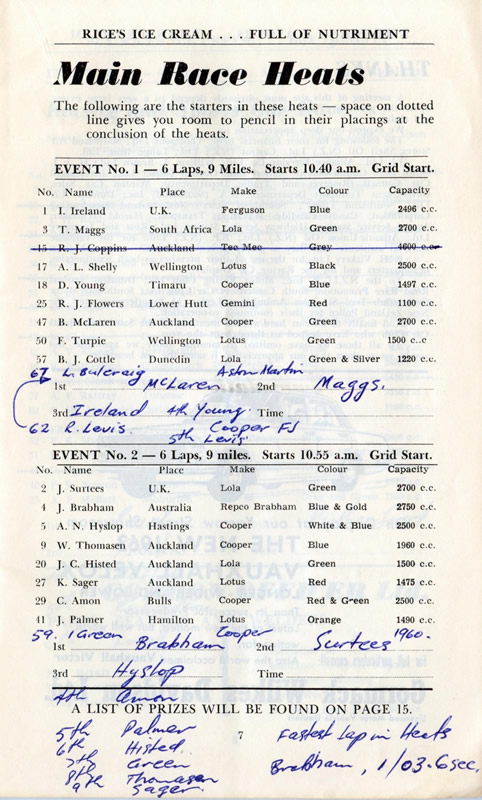 RICE'S ICE CREAM . . . FULL OF NUTRIMENT
Main Race Heats
The following are the starters in these heats — space on dotted
line gives you room to pencil in their placings at the
conclusion of the heats.
EVENT No. 1 — 6 Laps, 9 Miles. Starts 10.40 a.m. Grid Start.
No. Name Place Make Colour Capacity
1 I. Ireland U.K. Ferguson Blue 2496 c.c.
3 T. Maggs South Africa Lola Green 2700 c.c.
15 R. J. Coppins Auckland Tec Mec Grey 4600 c.c.
17 A. L. Shelly Wellington Lotus Black 2500 c.c.
18 D. Young Timaru Cooper Blue 1497 c.c.
25 R. J. Flowers Lower Hutt Gemini Red 1100 c.c.
47 B. McLaren Auckland Cooper Green 2700 c.c.
50 F. Turpie Wellington Lotus Green 1500 c..c
57 B. J. Cottle Dunedin Lola Green & Silver 1220 c.c.
67 L. Bulcraig Aston Martin
1st McLaren 2nd Maggs.
3rd Ireland 4th Young. Time
62 R. Levis. Cooper FJ
5th Levis
EVENT No. 2 — 6 Laps, 9 miles. Starts 10.55 a.m. Grid Start.
No. Name Place Make Colour Capacity
2 J. Surtees U.K. Lola Green 2700 c.c.
4 J. Brabham Australia Repco Brabham Blue & Gold 2750 c.c.
5 A. N. Hyslop Hastings Cooper White & Blue 2500 c.c.
9 W. Thomasen Auckland Cooper Blue 1960 c.c.
20 J. C. Histed Auckland Lola Green 1500 c.c.
27 K. Sager Auckland Lotus Red 1475 c.c.
29 C. Amon Bulls Cooper Red & Green 2500 c.c.
41 J. Palmer Hamilton Lotus Orange 1490 c.c.
59. I Green Cooper 1960.
1st Brabham 2nd Surtees
3rd Hyslop Time
4th Amon
A LIST OF PRIZES WILL BE FOUND ON PAGE 15.
5th Palmer 7 Fastest Lap in Heats
6th Histed.
7th Green Brabham, 1/03.6sec.
8th Thomasen
9th Sager.